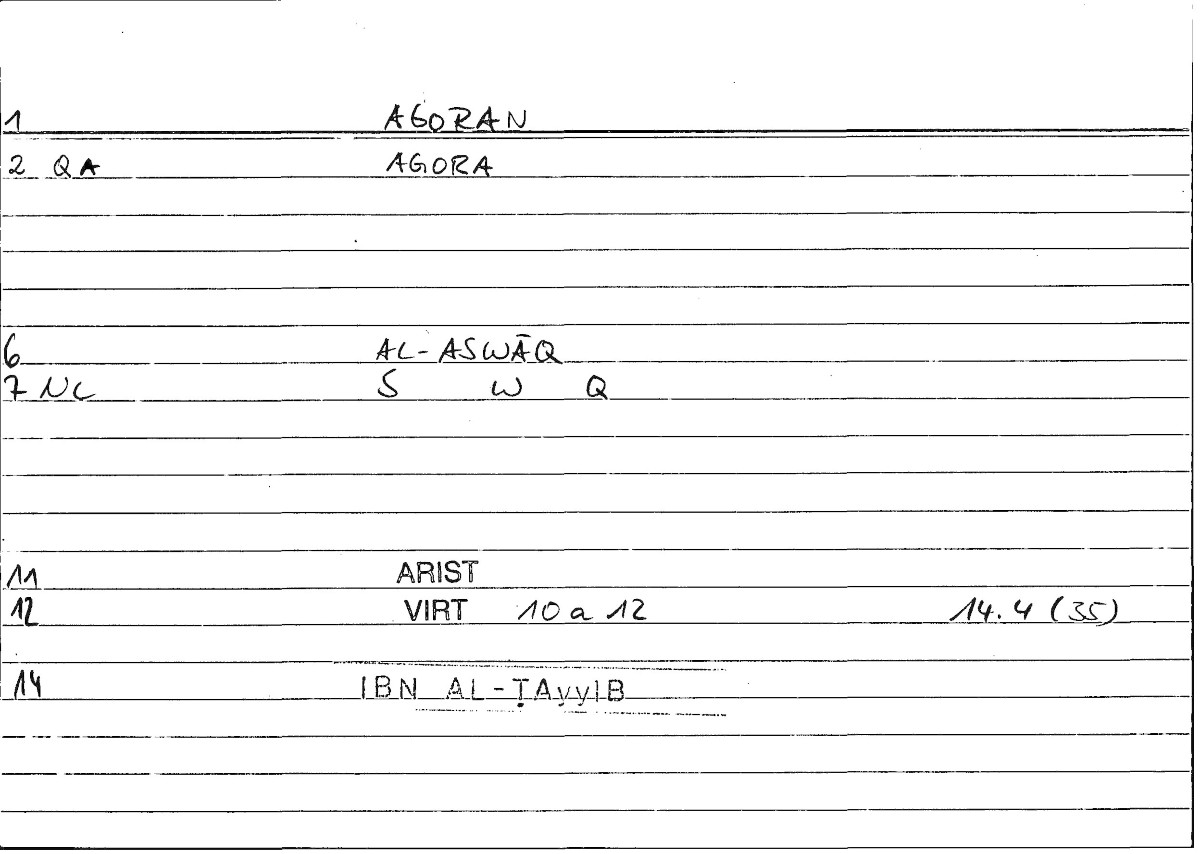 1 AGORAN
2 QA AGORA
6 AL-ASWĀQ
7 NC S W Q
11 ARIST
12 VIRT 10 a 12 14.4 (35)
14 IBN AL-ṬAyyIB